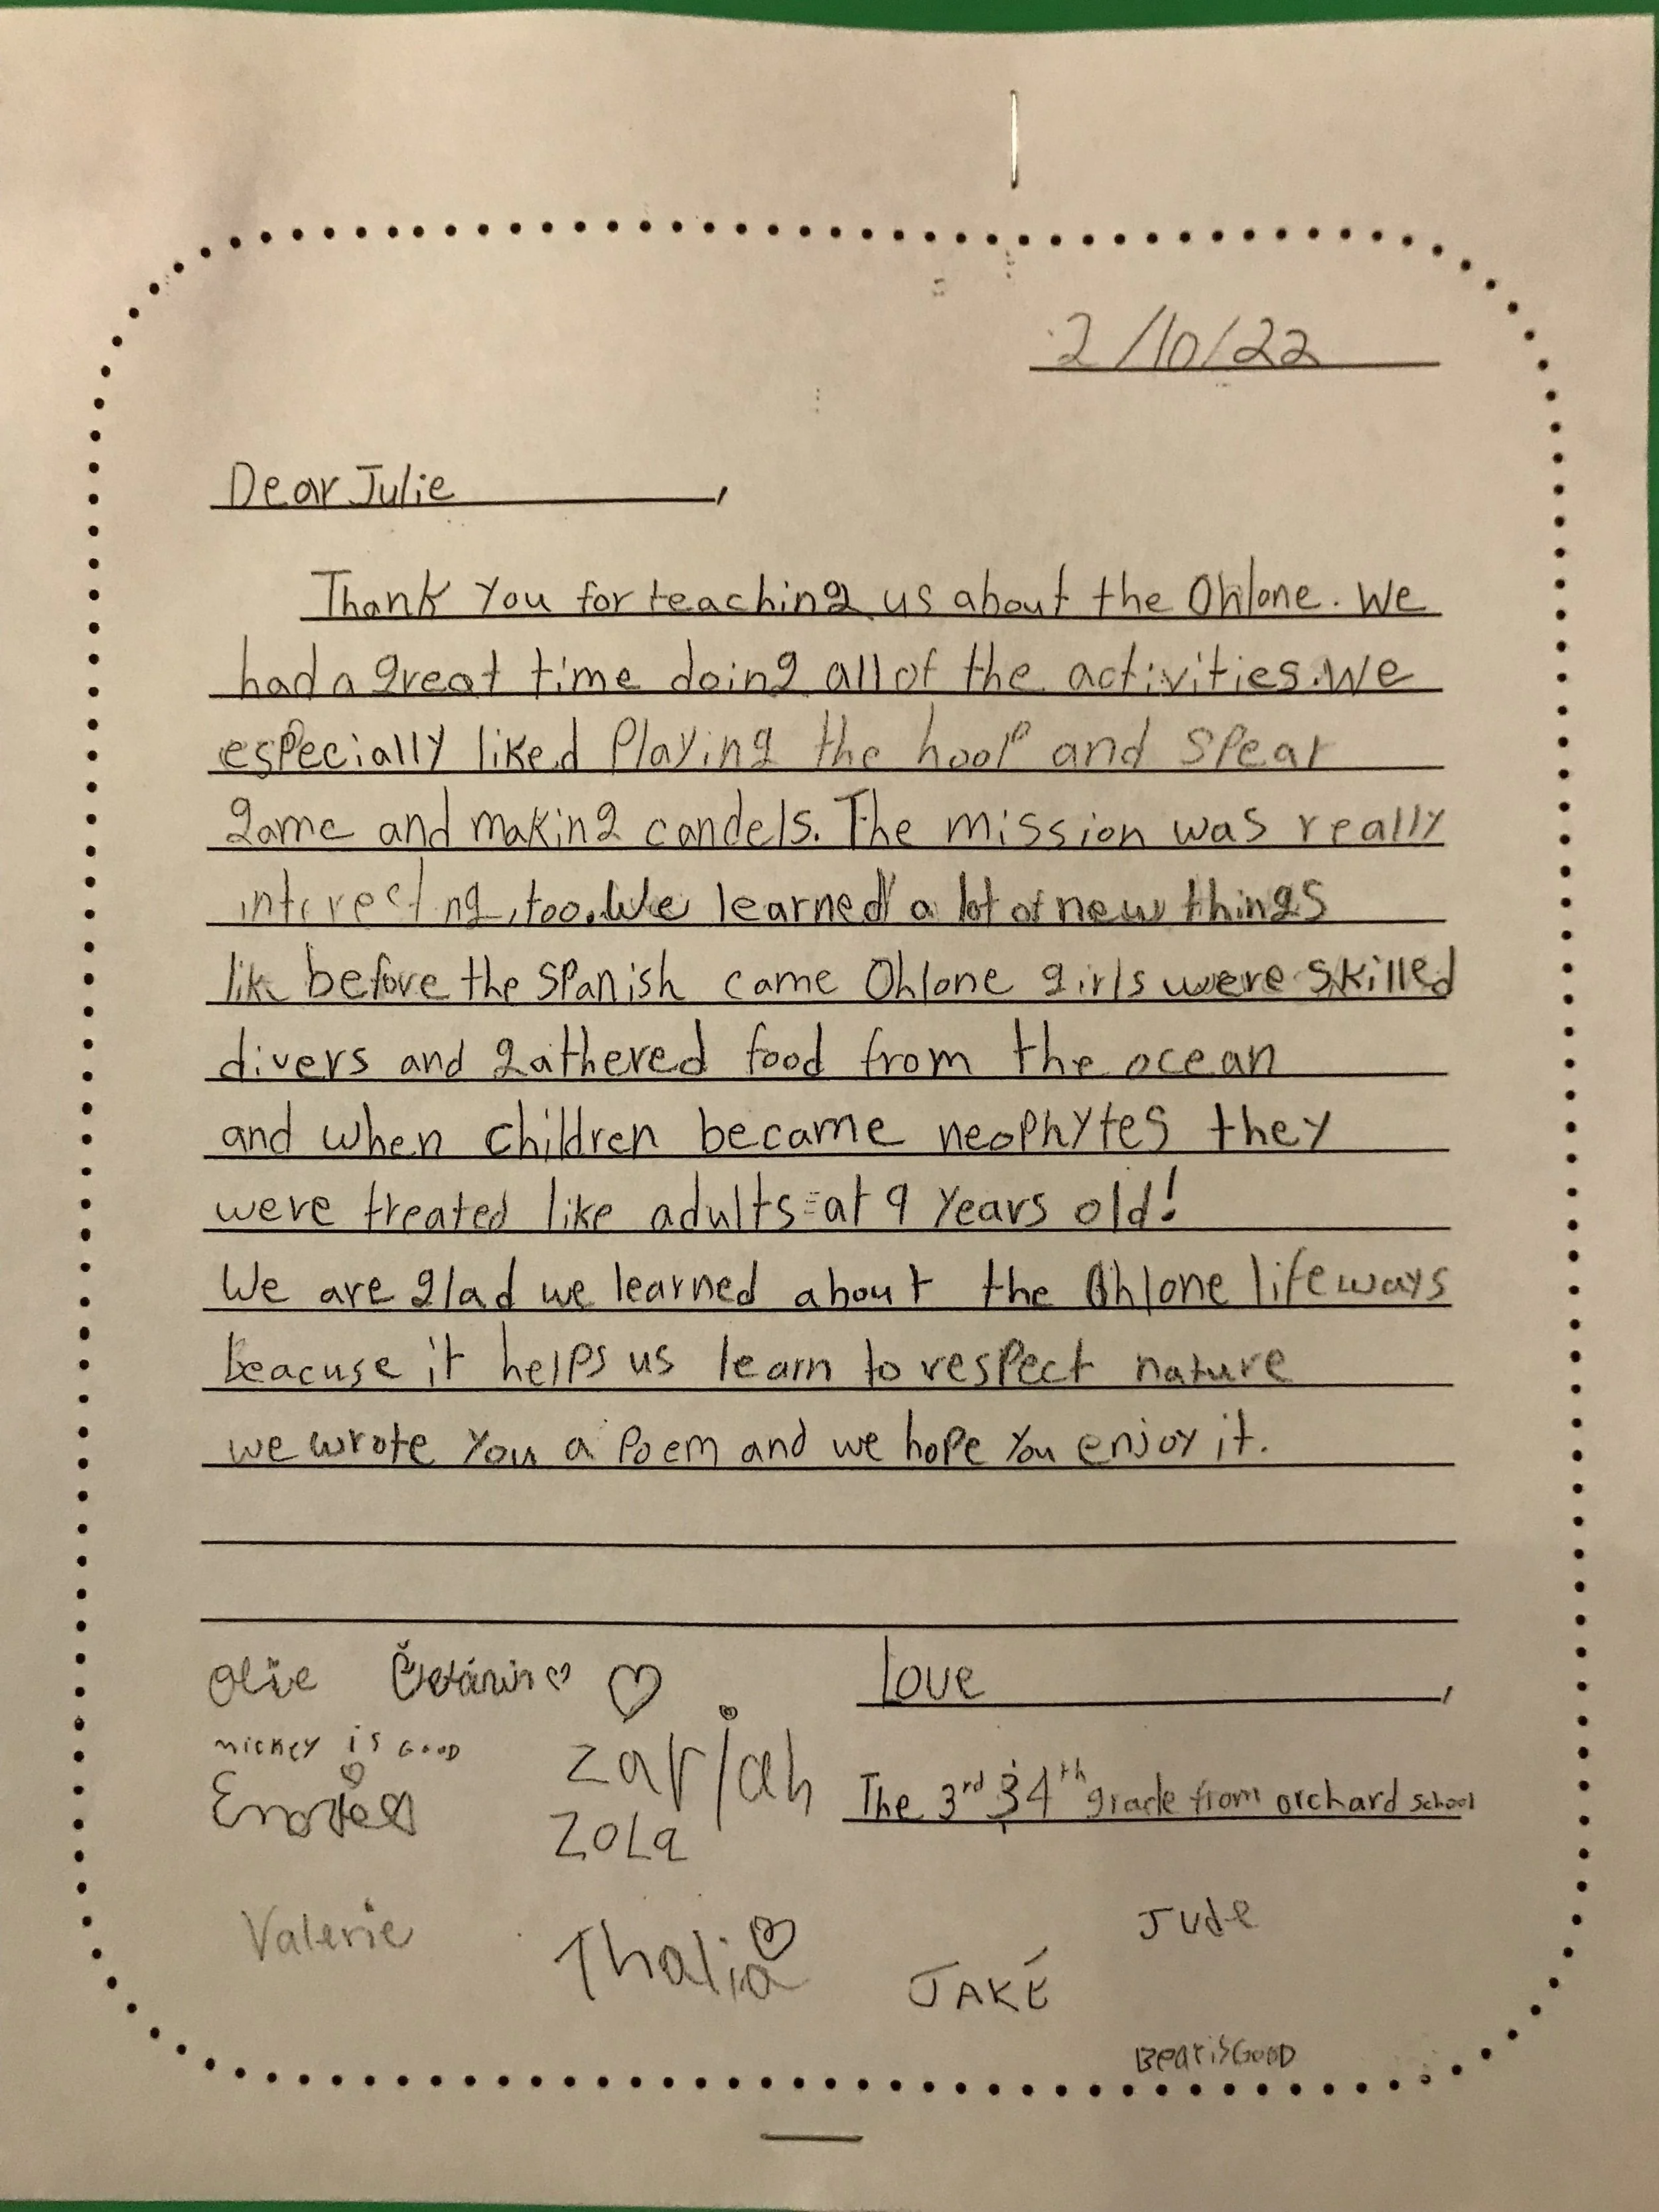 2/10/22
Dear Julie,
Thank You for teaching us about the Ohlone. We
had a great time doing all of the activities. We
especially liked Playing the hoop and spear
game and making candels. The mission was really
interesting, too. We learned a lot of new things
like before the Spanish came Ohlone girls were skilled
divers and gathered food from the ocean
and when children became neophytes they
were treated like adults=at 9 years old!
We are glad we learned about the Ohlone lifeways
beacuse it helps us learn to respect nature
we wrote you a Poem and we hope you enjoy it.
Love,
The 3rd & 4th grade from orchard school
Olive
mickey is GooD
zariah
ZoLa
Valerie
Thalia
JAKE
Jude
BearisGooD